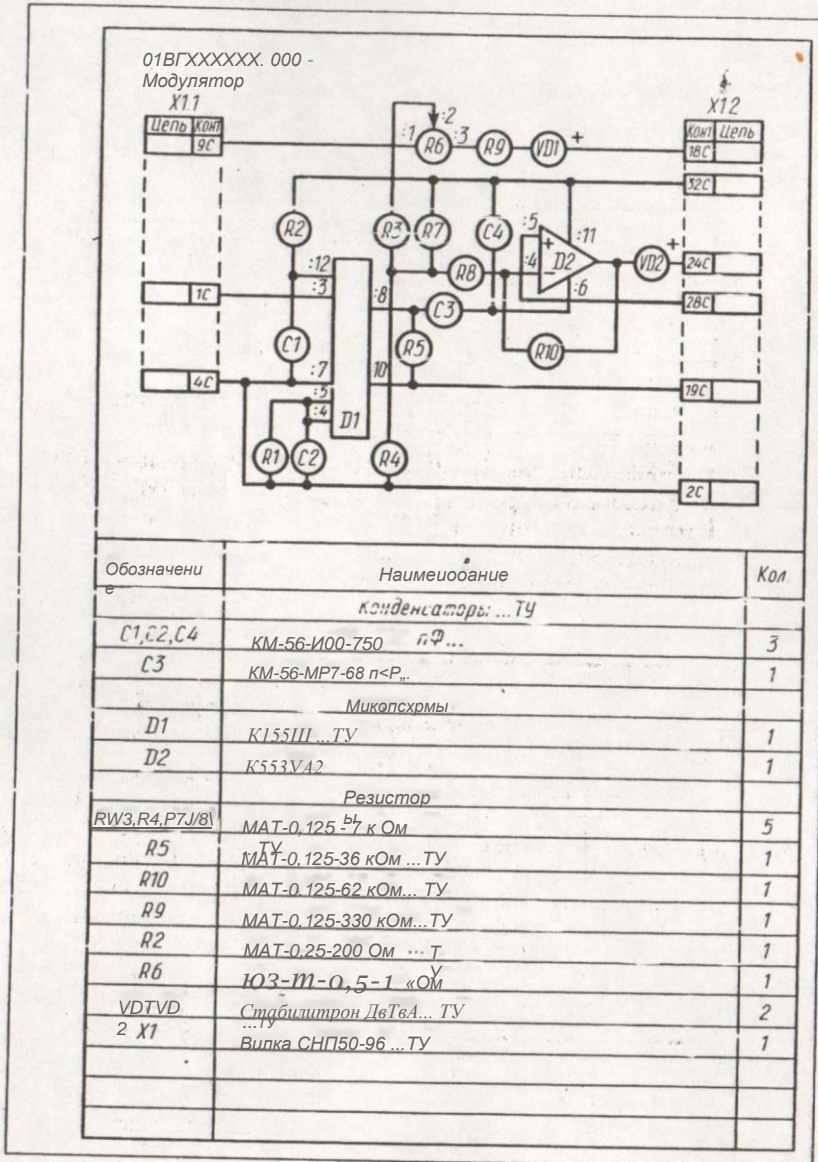 01ВГХХХХХХ. 000 -
Модулятор
X1.1
X1.2
Цепь Конт
Конт Цепь
9С
:1
:2
R6
:3
R9
VD1
+
18С
32С
R2
R3
R7
C4
:5
+
:11
D2
:4
–
:6
VD2
+
24С
:12
:3
1С
:8
R8
C3
28С
C1
R5
R10
:7
10
4С
19С
:5
:4
D1
R1
C2
R4
2С
Обозначени
е
Наименооание
Кол.
Конденсаторы ...ТУ
С1,С2,С4 КМ-56-И00-750 пФ... 3
С3 КМ-56-МР7-68 п<Р„. 1
Микопсхрмы
D1 К155Ш ...ТУ 1
D2 К553УА2 1
Резистор
ы
RW3,R4,P7J/8\ МАТ-0,125 - 7 к Ом 5
ТУ
R5 МАТ-0,125-36 кОм ...ТУ 1
R10 МАТ-0,125-62 кОм... ТУ 1
R9 МАТ-0,125-330 кОм...ТУ 1
R2 МАТ-0,25-200 Ом ... Т 1
У
R6 ЮЗ-т-0,5-1 «Ом 1
VDTVD Стабилитрон ДвТвА... ТУ 2
...ТУ
2 X1 Вилка СНП50-96 ...ТУ 1